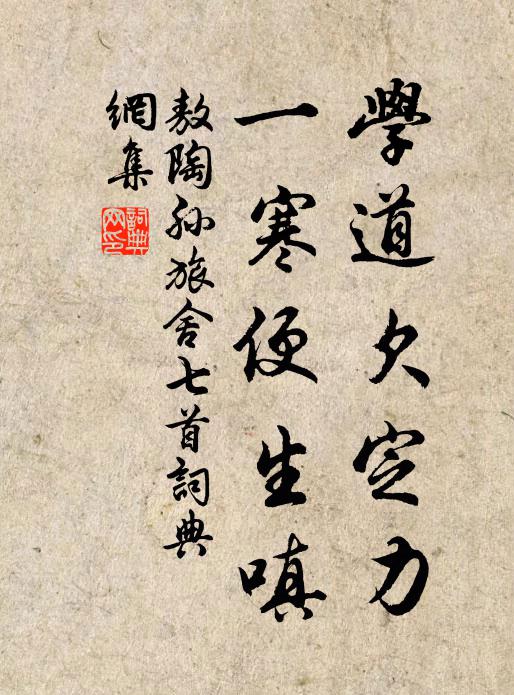 學道欠定力
一寒便生嗔
敖陶孫旅舍七首詞典
網集
詞典
網印